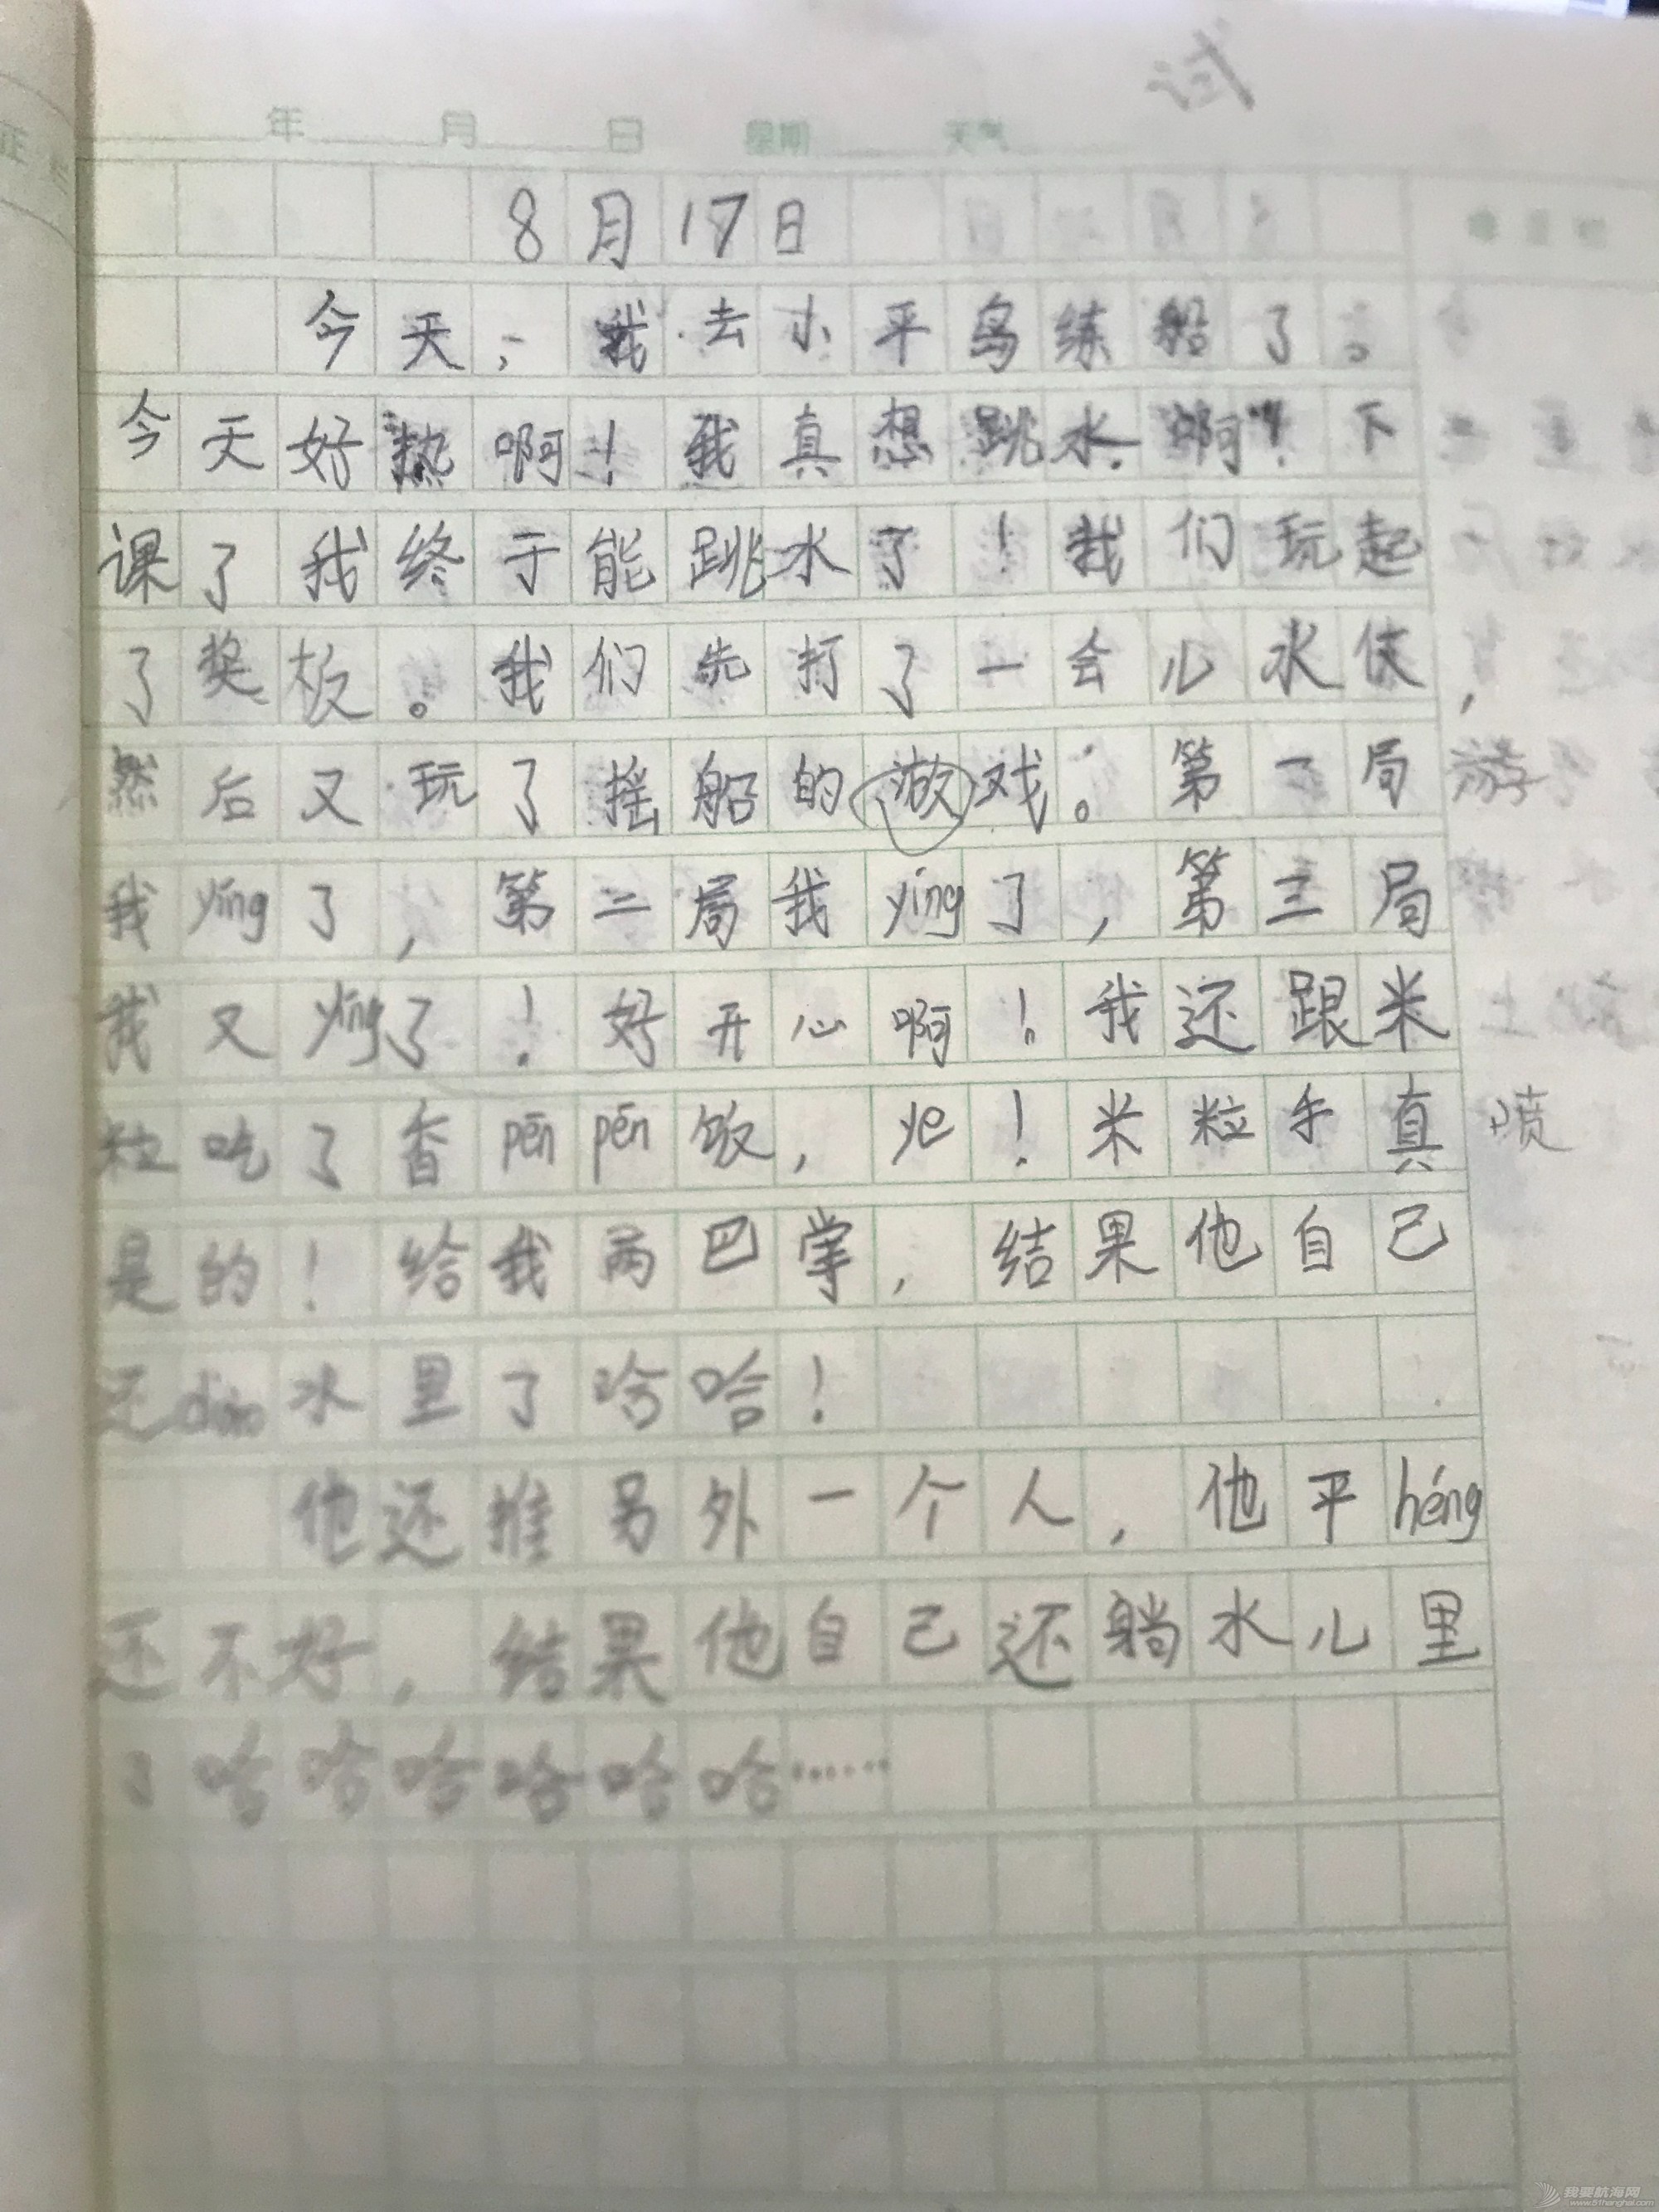 年 月 日 星期 天气
8月17日
今天,我去小平鸟练船了。
今天好热啊!我真想跳水啊!下
课了我终于能跳水了!我们玩起
了桨板。我们先打了一会儿水仗,
然后又玩了摇船的游戏。第一局 游
我yíng了,第二局我yíng了,第三局
我又yíng了!好开心啊!我还跟米
粒吃了香pēn pēn饭,ye!米粒手真 喷
是的!给我两巴掌,结果他自己
还diào水里了哈哈!
他还推另外一个人,他平héng
还不好,结果他自己还躺水儿里
了哈哈哈哈哈哈……
我要航海网
www.51hanghai.com